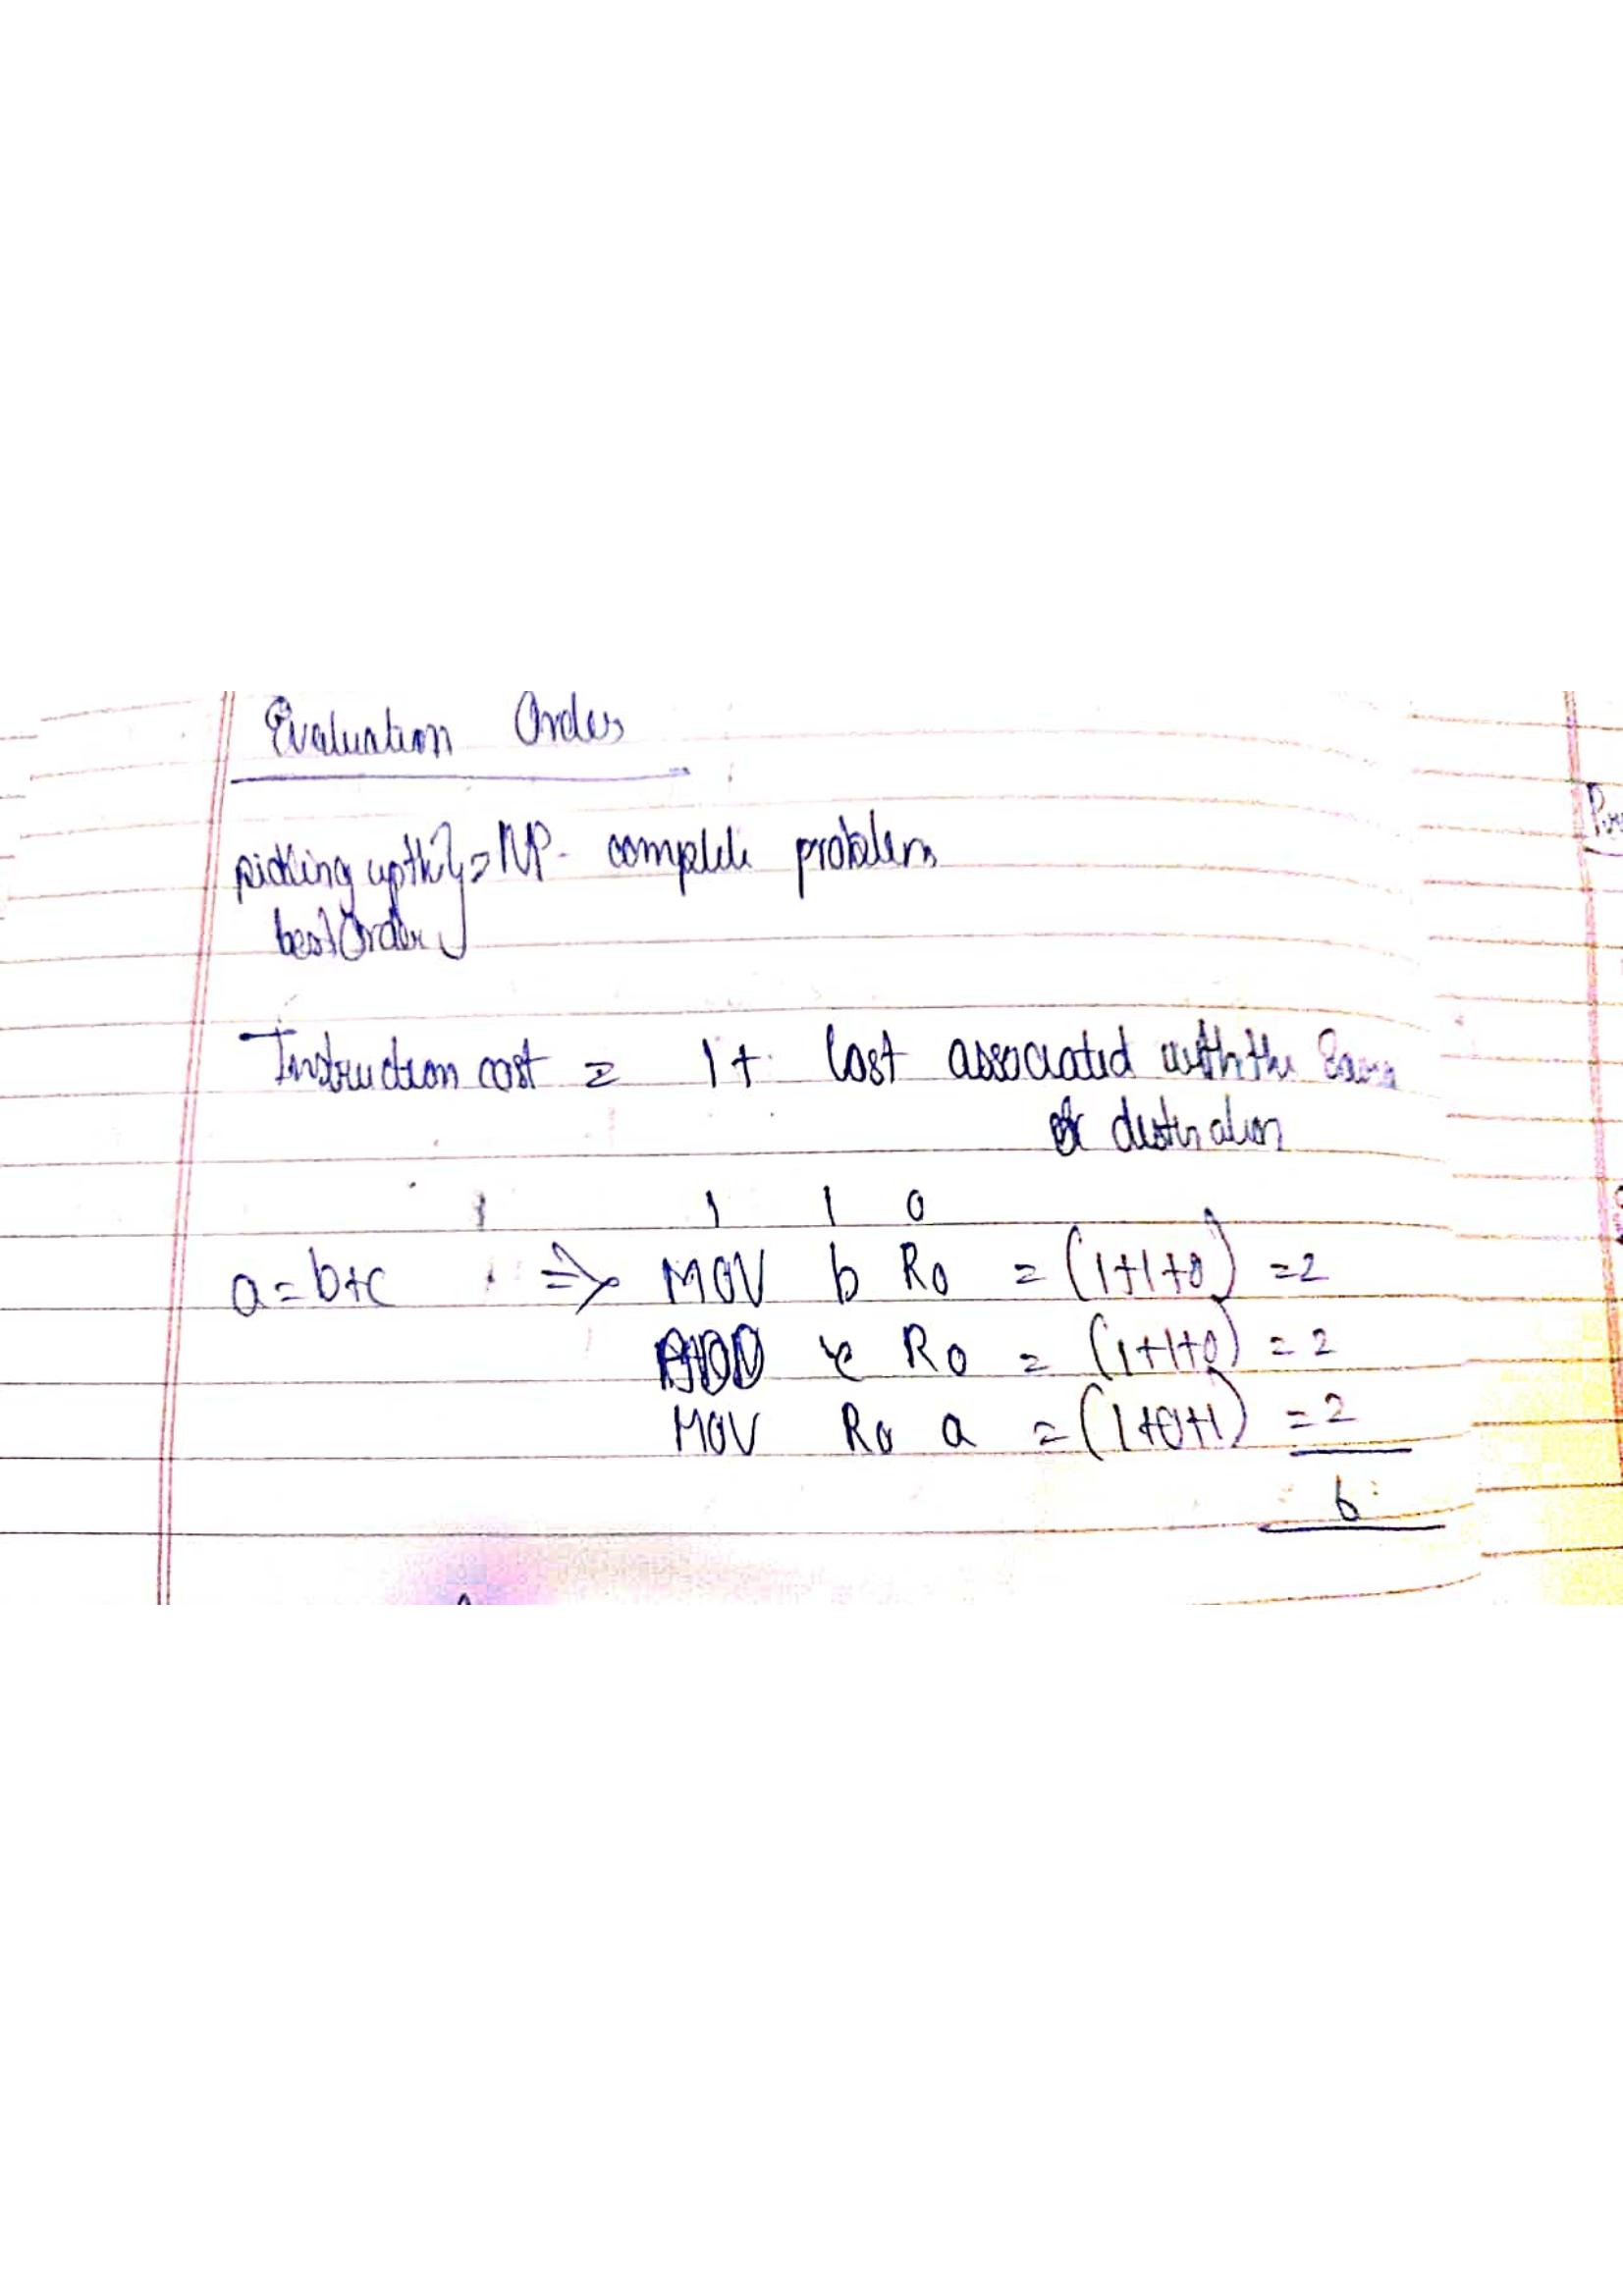 Evaluation Order
picking up the } = NP- complete problem
best Order
Instruction cost = 1 + Cost associated with the
or destination
1 1 1 0
a = b+c ⇒ MOV b R0 = (1+1+0) = 2
ADD c R0 = (1+1+0) = 2
MOV R0 a = (1+0+1) = 2
6